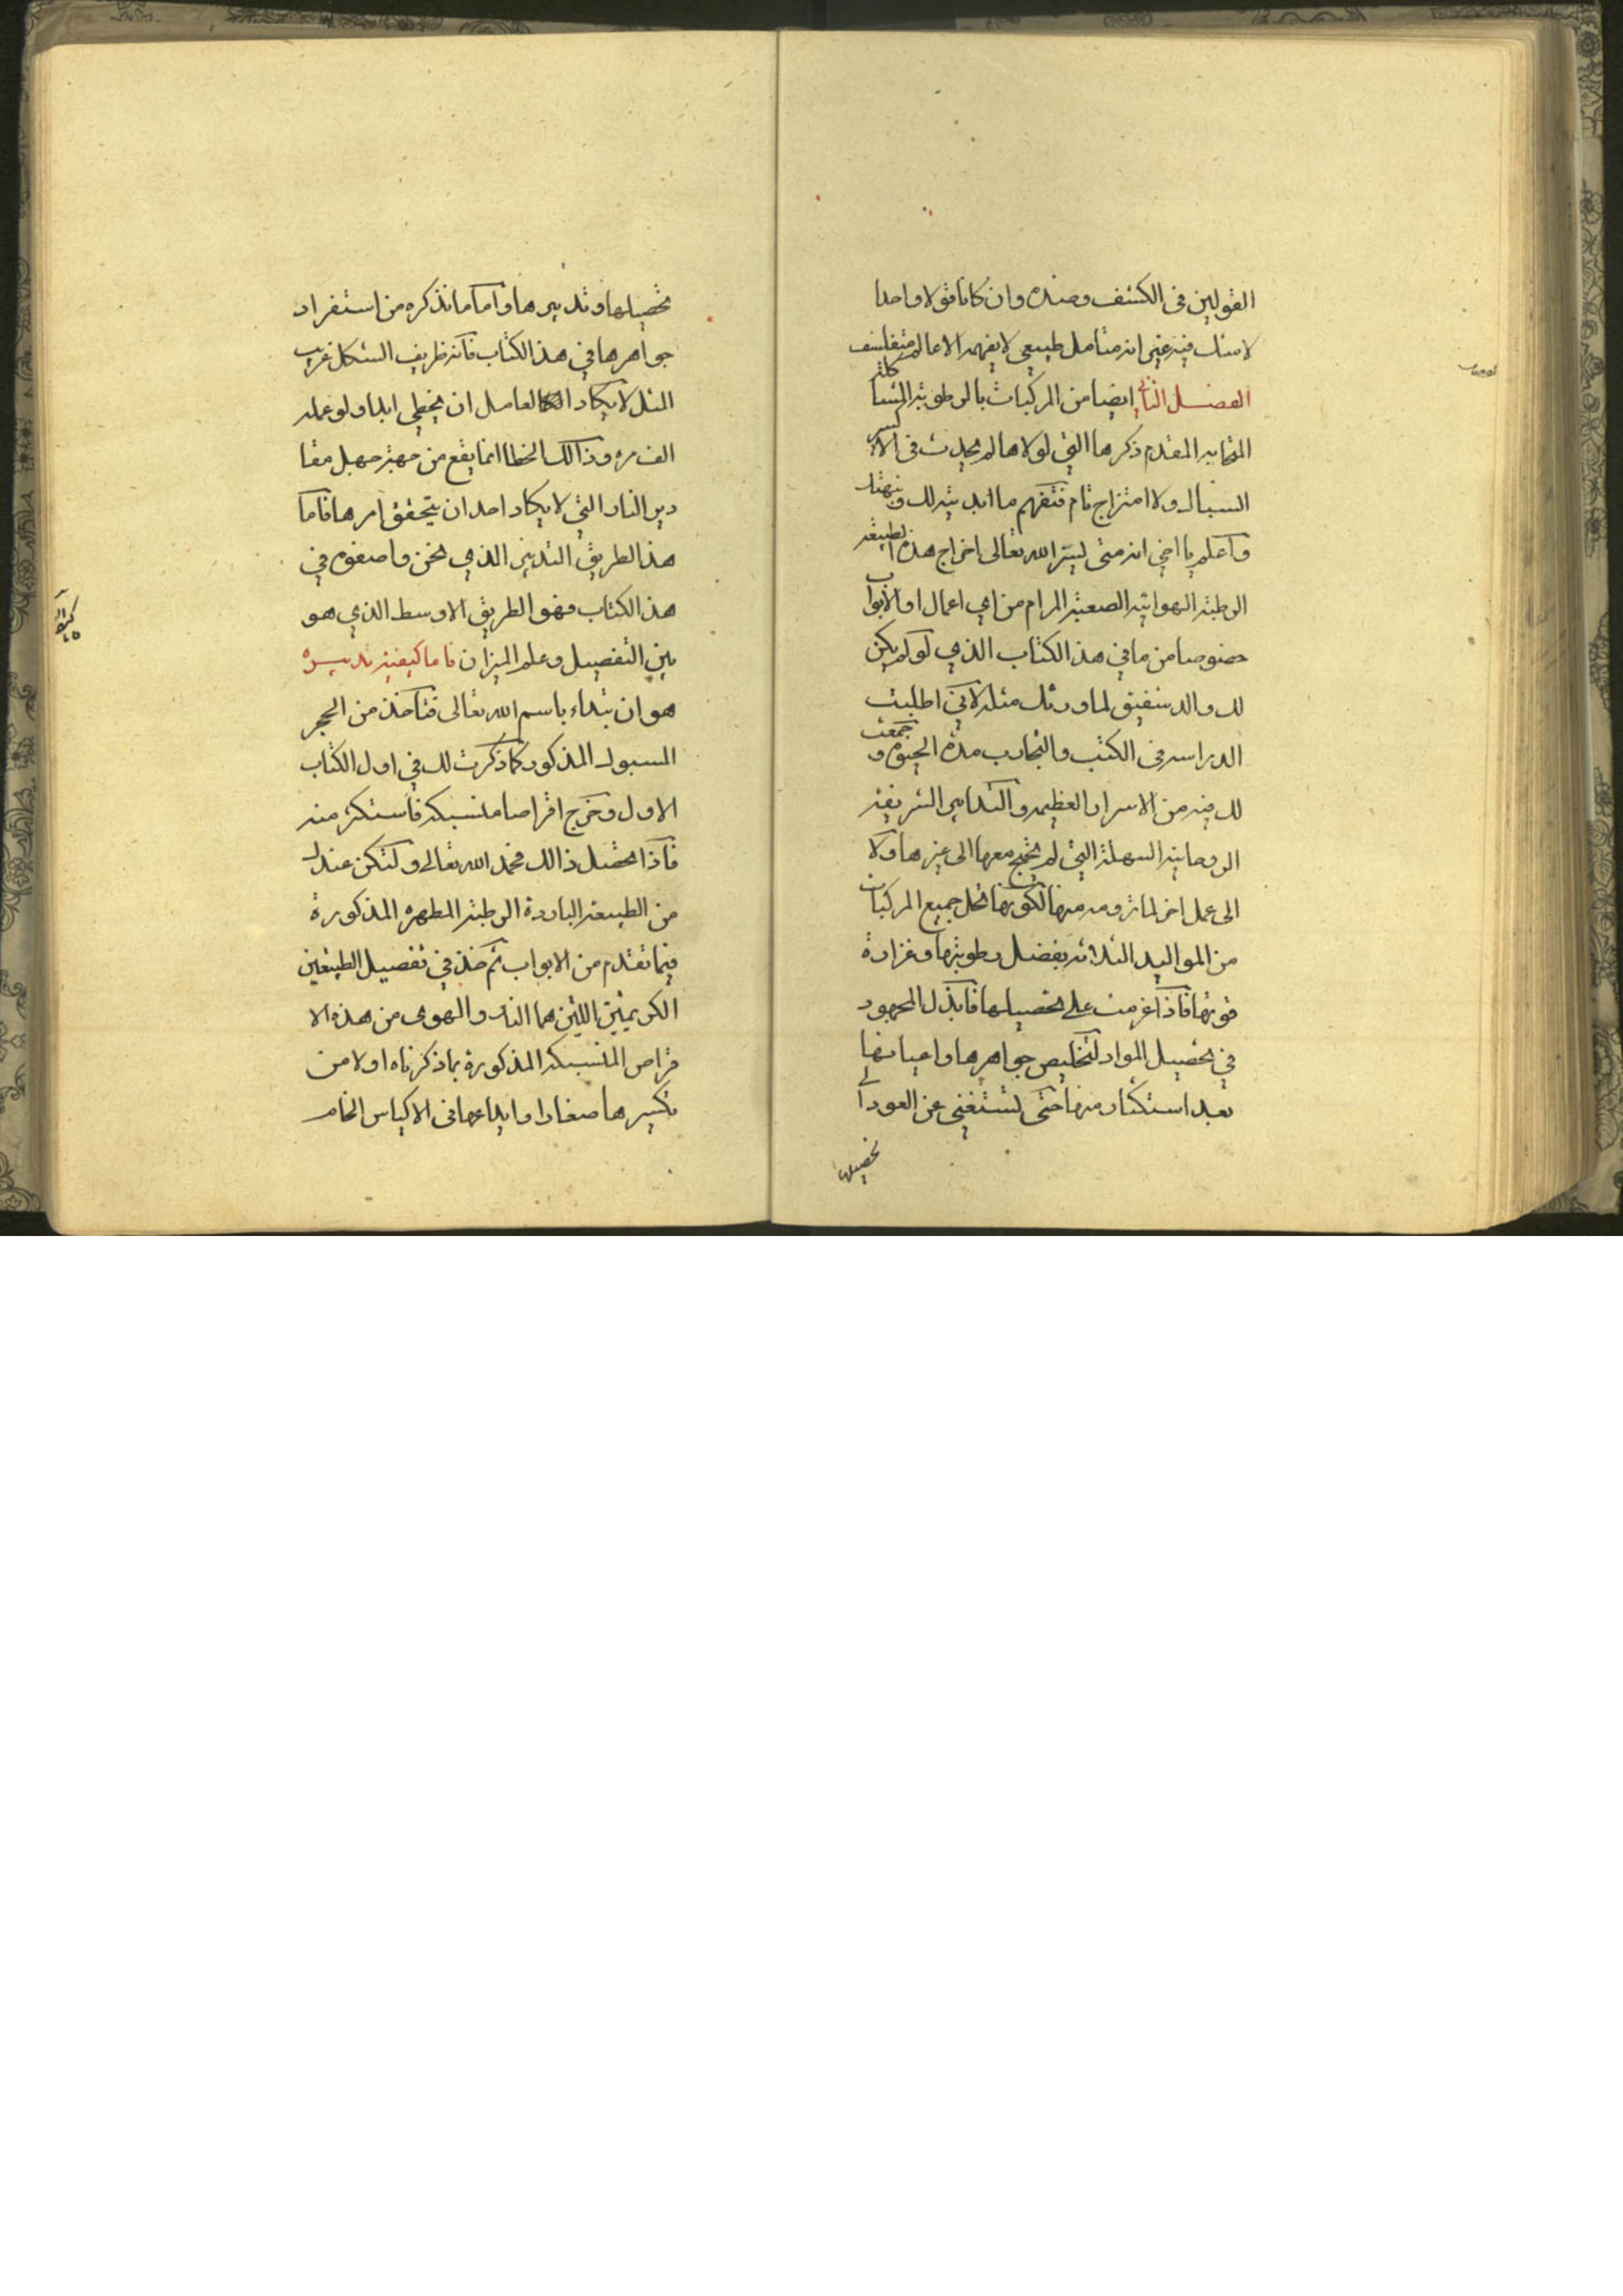 القولين في الكشف وضده وان كانا قولا واحدا
لا شك فيه غير انه متامل طبيعي لا يفهمه الا عالم متفلسف
الفصل الثاني ايضا من المركبات بالرطوبة المشاكلة
المتقدم ذكرها التي لولاها لم يحدث في الاكسير
السيال ولا امتزاج تام فتفهم ما ابديته لك ونبهتك
واعلم يا اخي انه متى يسر الله تعالى اخراج هذه الطبيعة
الرطبة الهوائية الصعبة المرام من اي اعمال او الابواب
خصوصا من ما في هذ الكتاب الذي لو لم يكن
لك والد شفيق لما ورثك مثله لانني اطلبت
الدراسه في الكتب والتجارب مدة الحيوة وجمعت
لك فيه من الاسرار العظيمه والتدابير الشريفة
الروحانية السهلة التي لم تحتج معها الى غيرها ولا
الى عمل اخر لما ترومه منها لكونها تحل جميع المركبات
من المواليد الثلاثه بفضل رطوبتها وغزارة
قوتها فاذا عزمت على تحصيلها فابذل المجهود
في تحصيل المواد لتخليص جواهرها واعيانها
بعد استكثار منها حتى تستغني عن العود الى
تحصيلها
تحصيلها وتدبيرها واما ما نذكره من استفراد
جواهرها في هذ الكتاب فانه ظريف الشكل غريب
المثل لا يكاد العامل ان يخطي ابدا ولو عمله
الف مره وذالك الخطا انما يقع من جهة جهل مقا
دير النار التي لا يكاد احد ان يتحقق امرها فاما
هذ الطريق التدبير الذي نحن واصفوه في
هذ الكتاب فهو الطريق الاوسط الذي هو
بين التفصيل وعلم الميزان فاما كيفية تدبيره
هو ان تبداء باسم الله تعالى فتاخذ من الحجر
المسبوك المذكور كما ذكرت لك في اول الكتاب
الاول وخرج اقراصا منسبكة فاستكثر منه
فاذا تحصل ذالك فحمد الله تعالى ولتكن عندك
من الطبيعة الباردة الرطبة المطهره المذكورة
فيما تقدم من الابواب ثم خذ في تفصيل الطبيعتين
الكريمتين اللتين هما النار والهوى من هذه الا
قراص المنسبكة المذكورة بما ذكرناه اولا من
تكسيرها صغارا وايداعها في الاكياس الخام